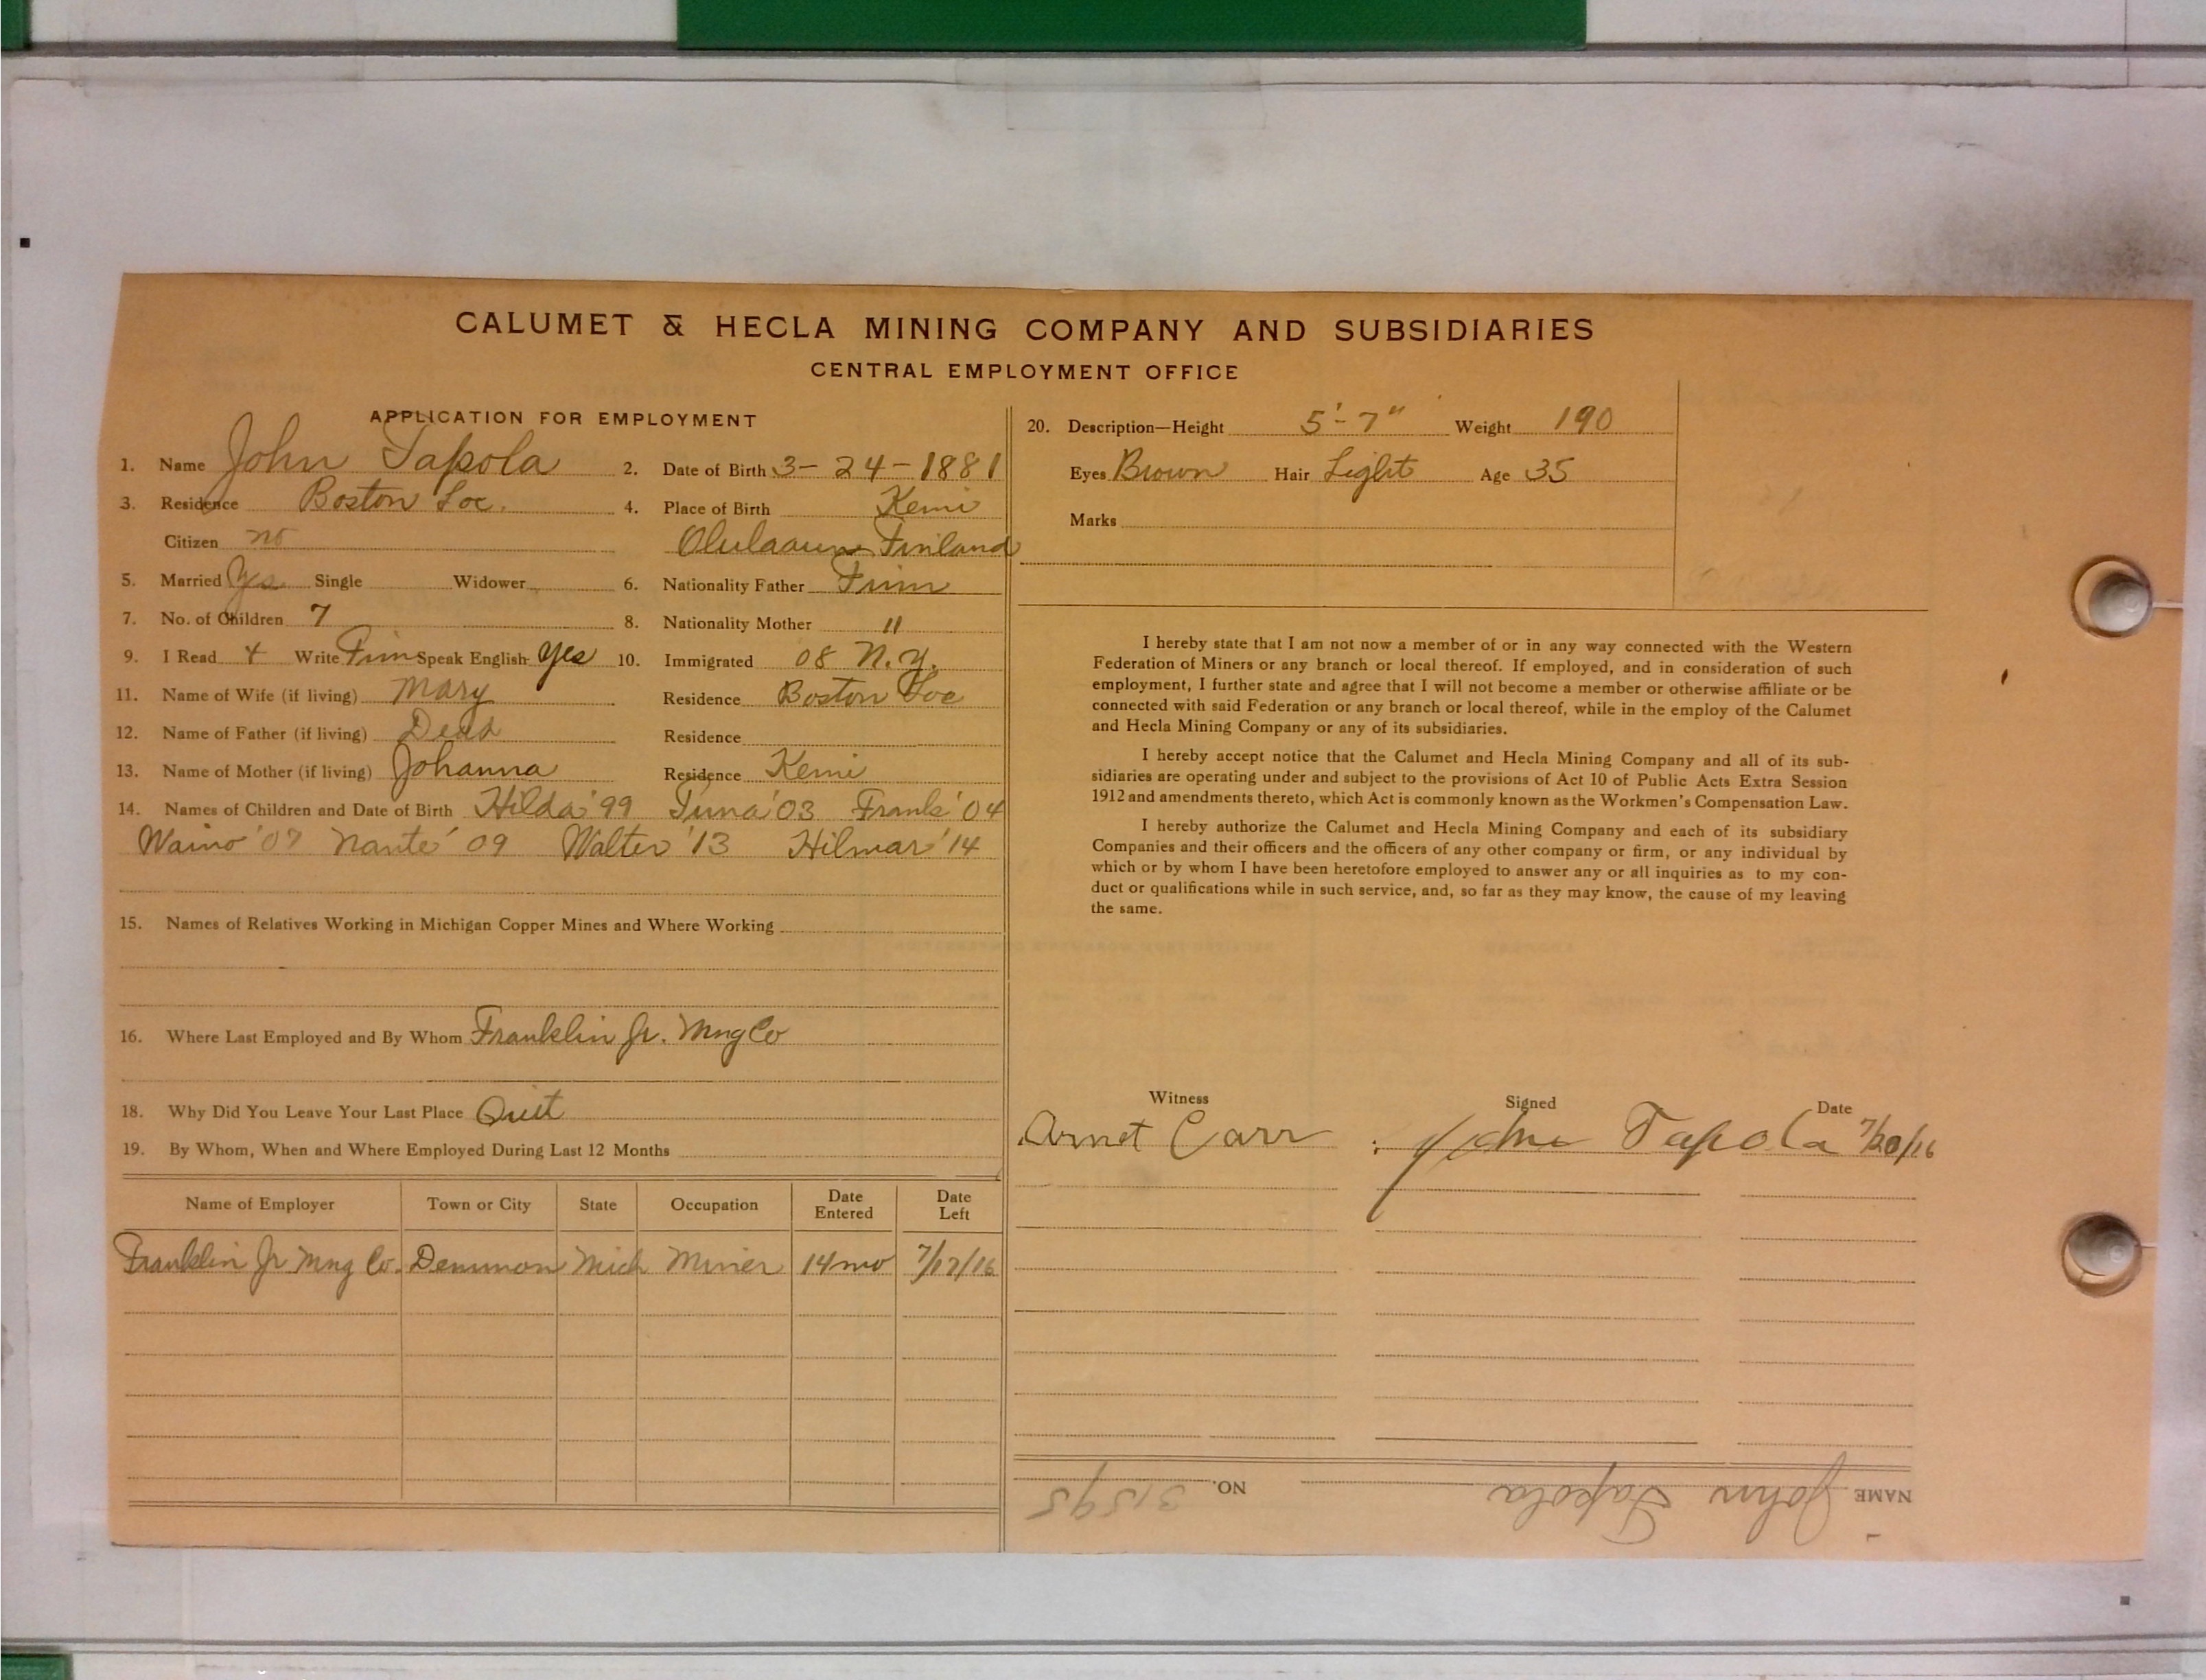 CALUMET & HECLA MINING COMPANY AND SUBSIDIARIES
CENTRAL EMPLOYMENT OFFICE
APPLICATION FOR EMPLOYMENT
1. Name John Tapola 2. Date of Birth 3-24-1881
3. Residence Boston Loc. 4. Place of Birth Kemi
Citizen no Finland
5. Married Yes Single Widower 6. Nationality Father Finn
7. No. of Children 7 8. Nationality Mother "
9. I Read + Write Finn Speak English yes 10. Immigrated 08 N.Y.
11. Name of Wife (if living) Mary Residence Boston Loc
12. Name of Father (if living) Dead Residence
13. Name of Mother (if living) Johanna Residence Kemi
14. Names of Children and Date of Birth Hilda '99 '03 Frank '04
Waino '07 '09 Walter '13 Hilmar '14
15. Names of Relatives Working in Michigan Copper Mines and Where Working
16. Where Last Employed and By Whom Franklin Jr. Mng Co
18. Why Did You Leave Your Last Place Quit
19. By Whom, When and Where Employed During Last 12 Months
Name of Employer Town or City State Occupation Date Entered Date Left
Franklin Jr Mng Co. Demmon Mich Miner 14 mo 7/17/16
20. Description—Height 5'-7" Weight 190
Eyes Brown Hair Light Age 35
Marks
I hereby state that I am not now a member of or in any way connected with the Western
Federation of Miners or any branch or local thereof. If employed, and in consideration of such
employment, I further state and agree that I will not become a member or otherwise affiliate or be
connected with said Federation or any branch or local thereof, while in the employ of the Calumet
and Hecla Mining Company or any of its subsidiaries.
I hereby accept notice that the Calumet and Hecla Mining Company and all of its sub-
sidiaries are operating under and subject to the provisions of Act 10 of Public Acts Extra Session
1912 and amendments thereto, which Act is commonly known as the Workmen's Compensation Law.
I hereby authorize the Calumet and Hecla Mining Company and each of its subsidiary
Companies and their officers and the officers of any other company or firm, or any individual by
which or by whom I have been heretofore employed to answer any or all inquiries as to my con-
duct or qualifications while in such service, and, so far as they may know, the cause of my leaving
the same.
Witness Signed Date
Arnet Carr John Tapola 7/20/16
NAME John Tapola NO. 31595